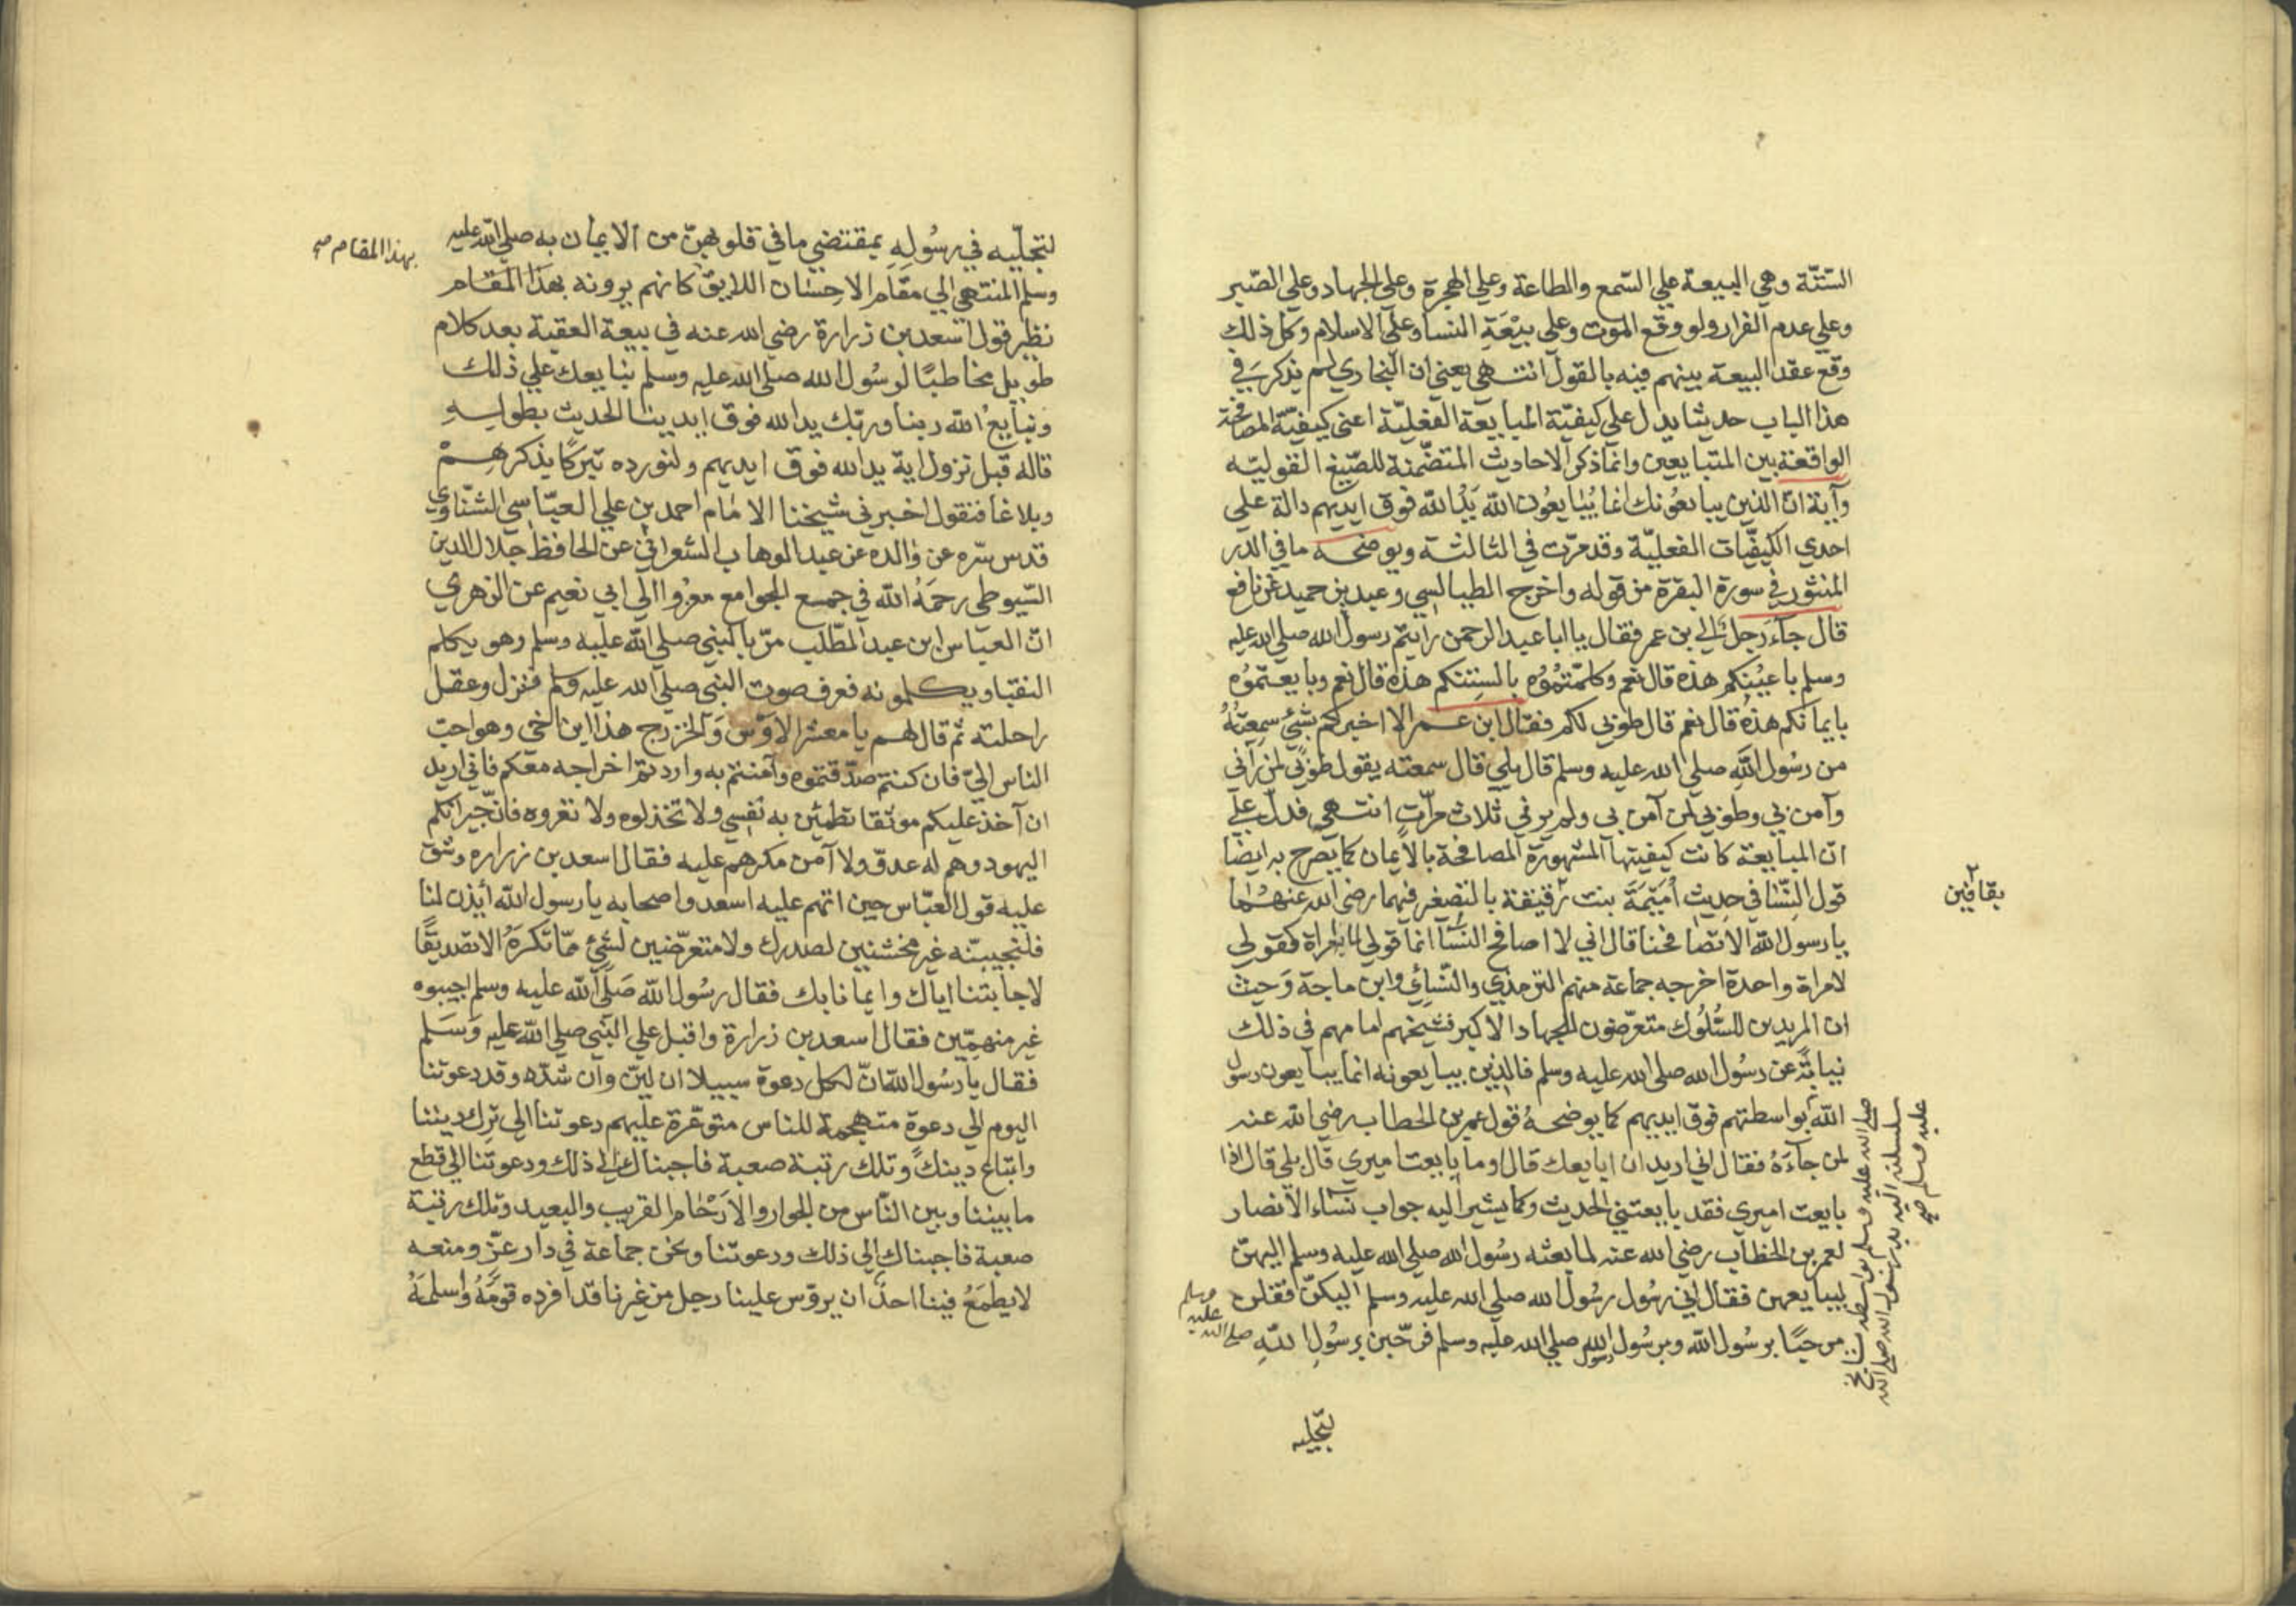 الستّة وهي البيعة علي السّمع والطاعة وعلي الهجرة وعلي الجهاد وعلي الصّبر
وعلي عدم الفرار ولو وقع الموت وعلي بيْعَةِ النسا وعلي الاسلام وكل ذلك
وقع عقد البيعة بينهم فيه بالقول انتهي يعني ان البخاري لم يذكر في
هذا الباب حديثا يدل علي كيفيّة المبايعة الفعليّة اعني كيفيّة المصافحة
الواقعة بين المتبايعين وانما ذكر الاحاديث المتضمّنة للصّيغ القوليّه
وآية انّ الذين يبايعُونك انما يُبايعُون الله يَدُ الله فوق ايديهم دالة علي
احدي الكيفيّات الفعليّة وقد مرّت في الثالثة ويوضحه ما في الدر
المنثور في سورة البقرة من قوله واخرج الطيالسي وعبد بن حميد عن نافع
قال جآء رَجل الي بن عمر فقال يا ابا عبد الرحمن رايتم رسول الله صلي الله عليه
وسلم باعيُنِكم هذه قال نعم وكلمّتمُوُه بالسِنتكم هذه قال نعم وبايعتموُه
بايمانكم هذهُ قال نعم قال طوبي لكم فقال ابن عمر الا اخبركم بشيْ سمعتُهُ
من رسُول اللهِ صلي الله عليه وسلم قال بلي قال سمعته يقول طوبَي لمن رآني
وآمن بي وطوبي لمن آمن بي ولم يرني ثلاث مرّات انتهي فدلّ علي
انّ المبايعة كانت كيفيتها المشهورة المصافحة بالايمان كما يصرح به ايضا
قول النِّسَا في حديث اُمَيْمَةَ بنت رقيقة بالتصغير فيهما رضي الله عنهُما
يا رسول الله الا تصافحنا قال اني لا اصافح النسَآ انما قولي لمأية امراة كقولي
لامراة واحدة اخرجه جماعة منهم الترمذي والنّسائي وابن ماجة وَحيث
ان المريدين للسُّلُوك متعرّضون للجهاد الاكبر فشيخهم امامهم في ذلك
نيابَةً عن رسُول الله صلي الله عليه وسلم فالذين يبايعونه انما يبايعون رسول
الله بواسطتهم فوق ايديهم كما يوضحهُ قول عمر بن الخطاب رضي الله عنه
لمن جآءَهُ فقال اني اريد ان ابايعك قال اوما بايعت اميري قال بلي قال اذا
بايعت اميري فقد بايعتني الحديث وكما يشير اليه جواب نسَاء الانصار
لعمر بن الخطاب رضي الله عنه لما بعثه رسُول الله صلي الله عليه وسلم اليهنّ
ليبايعهن فقال اني رسُول رسُول الله صلي الله عليه وسلم اليكنّ فقلن
مرحبًا برسُول الله وبرسُول رسول الله صلي الله عليه وسلم فرحّبن برسُولِ اللهِ صلي الله عليه وسلم
بقافين
صلي الله عليه وسلم بواسطة
سلسلته اليه يد رسول الله صلي الله
عليه وسلم صح
لتجلّيه
لتجلّيه في رسُولِهِ بمقتضي ما في قلوبهنّ من الايمان به صلي الله عليه
وسلم المنتهي الي مقَام الاحِسَان اللايق كانهم يرونه بهذا المقَام
بهذا المقام صح
نظير قول اسعد بن زرارة رضي الله عنه في بيعة العقبة بعد كلام
طويل مخاطبًا لرسُول الله صلي الله عليه وسلم نبايعك علي ذلك
ونبايعُ الله ربنا وربّك يد الله فوق ايدينا الحديث بطوله
قاله قبل نزول اية يد الله فوق ايديهم ولنورده تبركًا بذكرهِم
وبلاغا فنقول اخبرني شيخنا الامام احمد بن علي العبّاسي الشنّاوي
قدس سّره عن والده عن عبد الوهاب الشعراني عن الحافظ جلال الدين
السّيوطي رحمَهُ الله في جمع الجوامع معزوا الي ابي نعيم عن الزهري
انّ العباس ابن عبد المطّلب مرّ بالنبي صلي الله عليه وسلم وهو يكلم
النقبا ويكلمونه فعرف صوت النبي صلي الله عليه وسلم فنزل وعقل
راحلته ثم قال لهم يا معشر الاوْس وَالخزرج هذا ابن اخي وهو احبّ
الناس اليّ فان كنتم صدّقتموه وآمنتم به واردتم اخراجه معكم فاني اريد
ان آخذ عليكم موثقا تطمئن به نفسي ولا تخذلوه ولا تغروه فانّ جيرانكم
اليهود وهم له عدوّ ولا آمن مكرهم عليه فقال اسعد بن زرارة وشق
عليه قول العبّاس حين اتهم عليه اسعد واصحابه يا رسول الله أيذن لنا
فلنجيبنّه غير مخشنين لصدرك ولا متعرّضين لشئ ممّا تكرَهُ الا تصديقًا
لاجابتنا اياك وايمانا بك فقال رسُول الله صَلّي الله عليه وسلم اجيبوه
غير متهمّين فقال اسعد بن زرارة واقبل علي النبي صلي الله عليه وَسَلم
فقال يا رسُول الله انّ لكل دعوة سبيلا ان لين وان شدّه وقد دعوتنا
اليوم الي دعوة متهجمة للناس متوعّرة عليهم دعوتنا الي ترك ديننا
واتباع دينك وتلك رتبة صعبة فاجبناك الي ذلك ودعوتنا الي قطع
ما بيننا وبين النّاس من الجوار والارْحَام القريب والبعيد وتلك رتبة
صعبة فاجبناك الي ذلك ودعوتنا ونحن جماعة في دار عزّ ومنعه
لا يطمَعُ فيناا احدٌ ان يروّس علينا رجل من غيرنا قد افرده قومَهُ واسلمَهُ